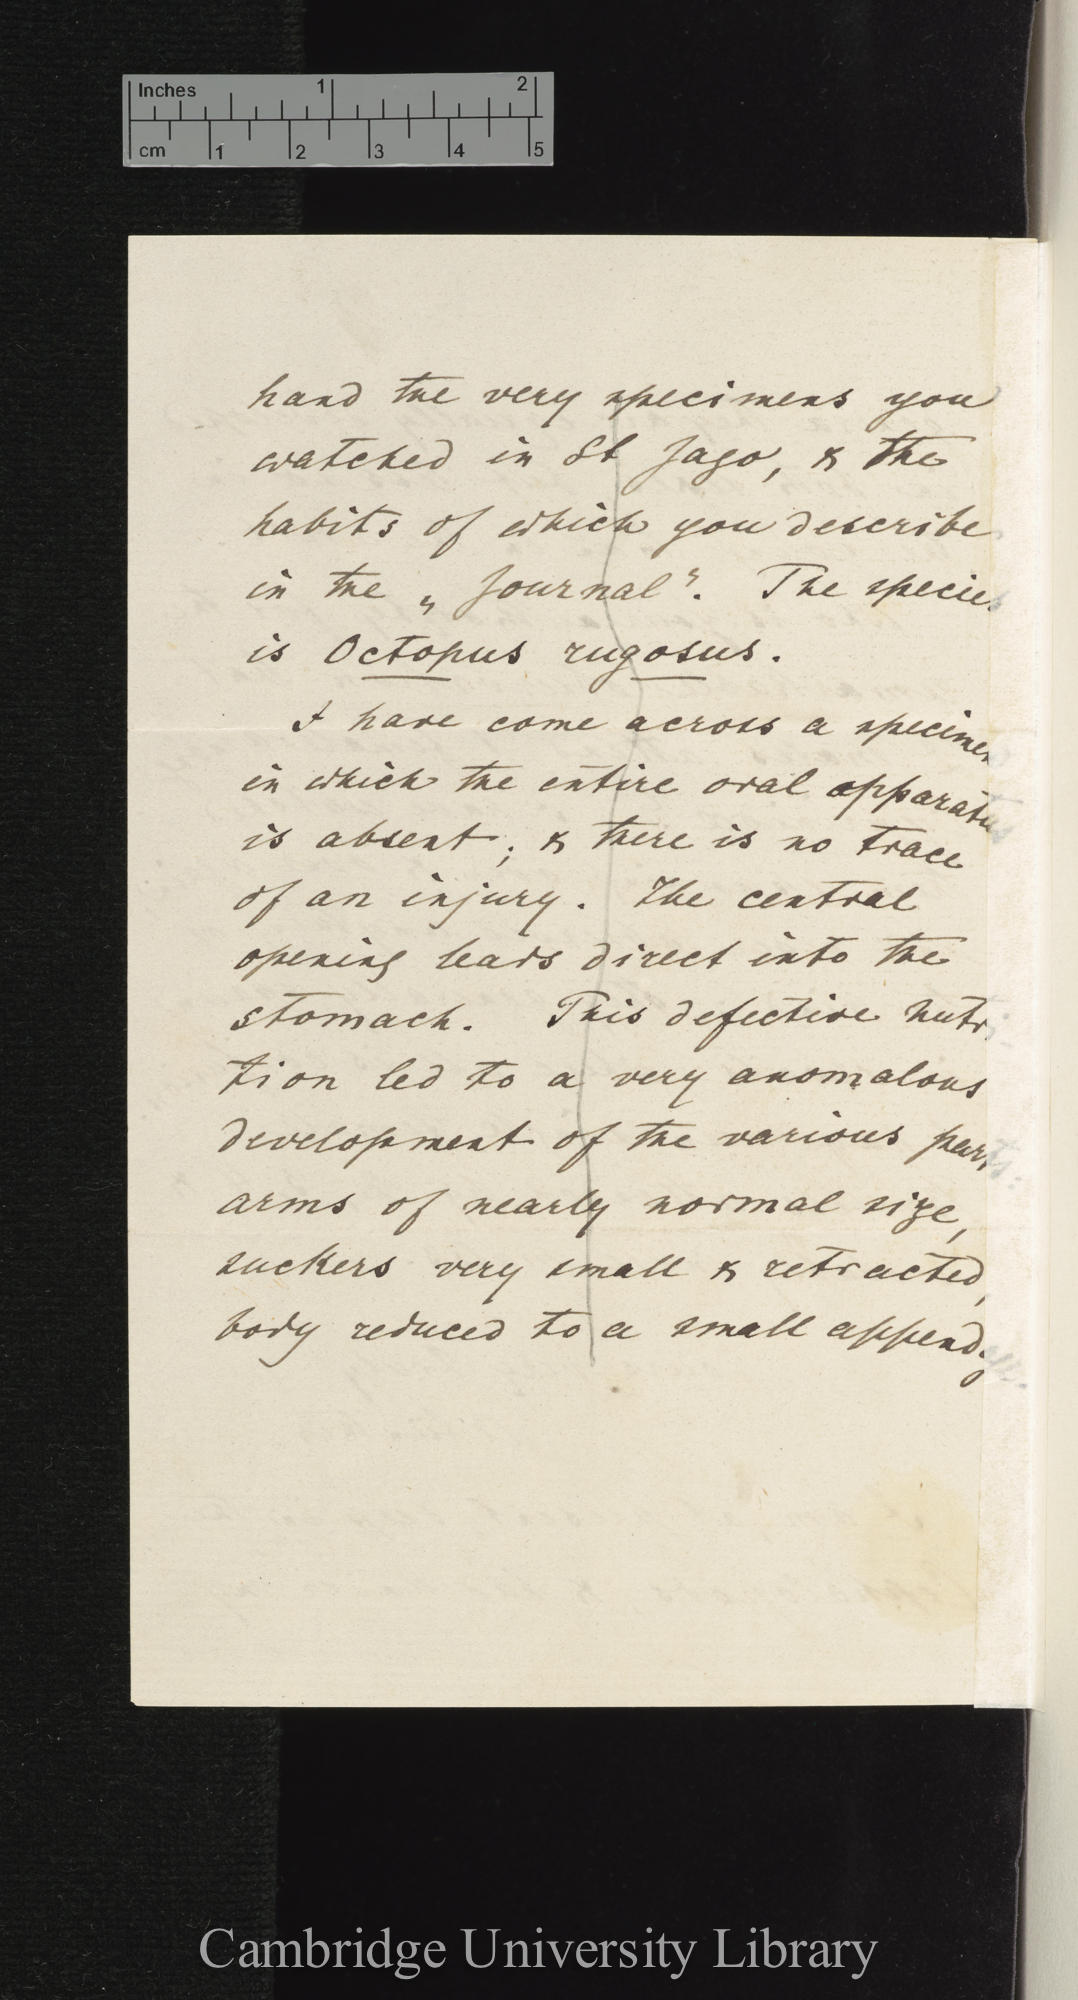 Inches 1 2
cm 1 2 3 4 5
hand the very specimens you
watched in St Jago, & the
habits of which you describe
in the „Journal". The species
is Octopus rugosus.
I have come across a specimen
in which the entire oral apparatus
is absent; & there is no trace
of an injury. The central
opening leads direct into the
stomach. This defective nutri
tion led to a very anomalous
development of the various parts
arms of nearly normal size,
suckers very small & retracted,
body reduced to a small append.
Cambridge University Library